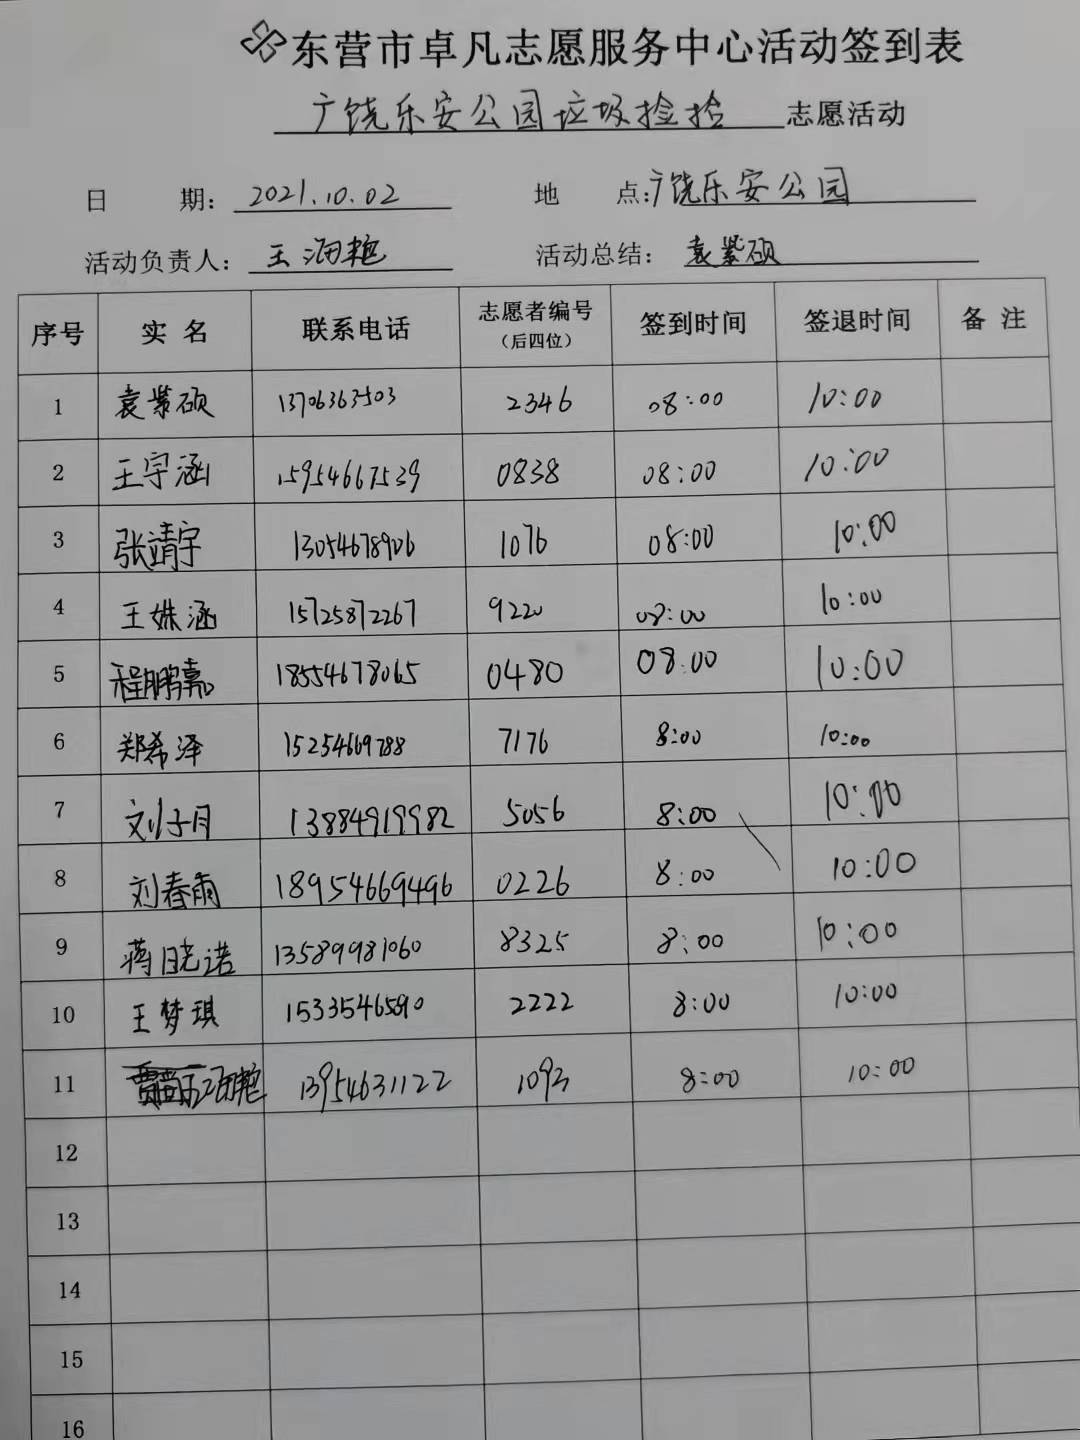 东营市卓凡志愿服务中心活动签到表
广饶乐安公园垃圾捡拾 志愿活动
日 期: 2021.10.02 地 点: 广饶乐安公园
活动负责人: 王海艳 活动总结: 袁紫硕
序号 实 名 联系电话 志愿者编号 (后四位) 签到时间 签退时间 备 注
1 袁紫硕 13706363503 2346 08:00 10:00
2 王宇涵 15954667539 0838 08:00 10:00
3 张靖宇 13054678906 1076 08:00 10:00
4 王姝涵 15725872267 9220 08:00 10:00
5 程鹏嘉 18554678065 0480 08:00 10:00
6 郑希泽 15254669788 7176 8:00 10:00
7 刘子月 13884919982 5056 8:00 10:00
8 刘春雨 18954669496 0226 8:00 10:00
9 蒋晓诺 13589981060 8325 8:00 10:00
10 王梦琪 15335465890 2222 8:00 10:00
11 王海艳 13954631122 1093 8:00 10:00
12
13
14
15
16